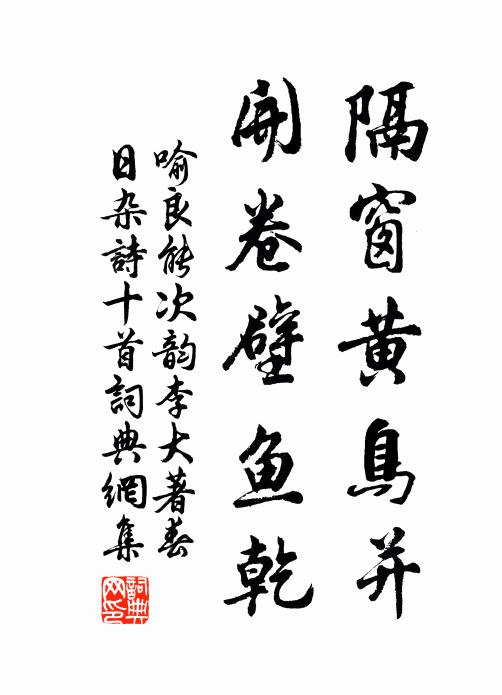 隔窗黄鳥并
開卷壁鱼乾
喻良能次韵李大著春
日杂詩十首詞典網集